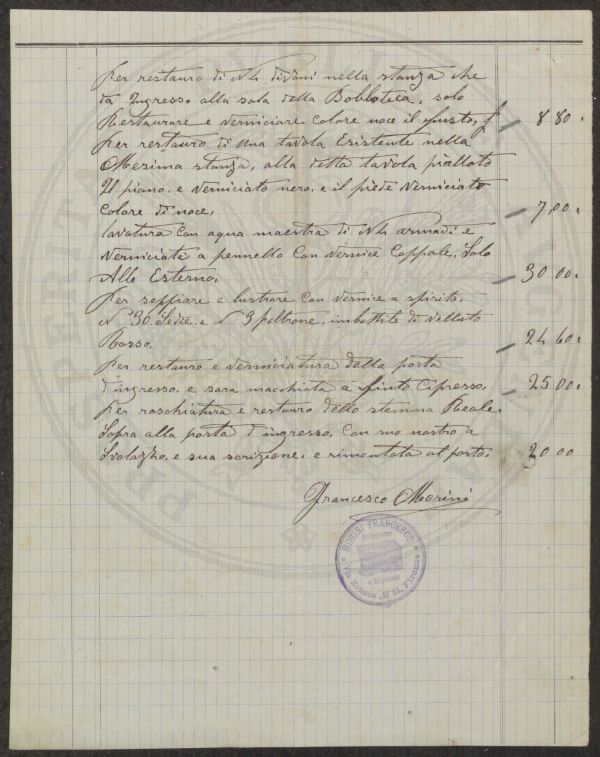 Per restauro di N 4 divani nella stanza che
da Ingresso alla sala della Bobloteca, solo
Restaurare e verniciare colore noce il fusto, £ 8 80.
Per restauro di Una tavola Esistente nella
Mesima stanza, alla detta tavola piallato
Il piano. e verniciato nero. e il piede verniciato
Colore di noce, 7,00.
lavatura con aqua maestra di N 4 armadi e
Verniciate a pennello Con vernice Coppale. Solo
Allo Esterno. 30 00.
Per seppiare e lustrare Con vernice a spirito.
N 30 Sedie. e N 3 poltrone. imbottite di velluto
Rosso. 24 60.
Per restauro e verniciatura della porta
d'ingresso. e sara macchiata a finto Cipresso. 25 00.
Per raschiatura e restauro dello stemma Reale.
Sopra alla porta d'ingresso, Con suo nastro a
Svolazzo. e sua scrizione. e rimontata al posto. 20 00
Francesco Morini
MORINI FRANCESCO
Via Romana N° 21. Firenze